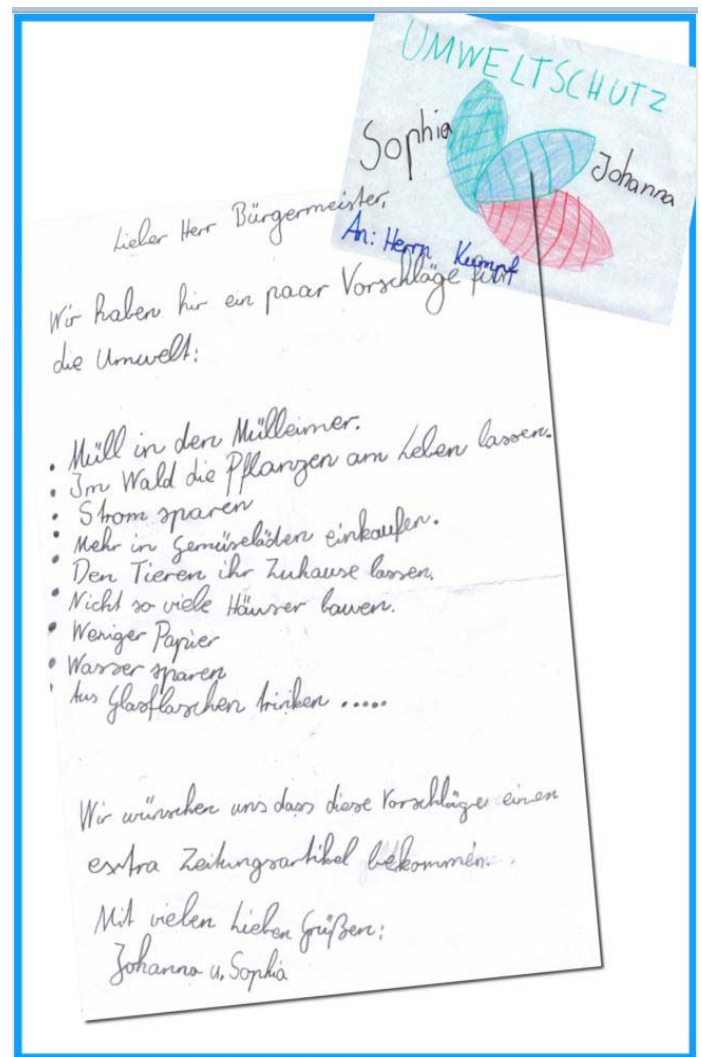 UMWELTSCHUTZ
Sophia
Johanna
An: Herrn Kumpf
Lieber Herr Bürgermeister,
Wir haben hir ein paar Vorschläge für
die Umwelt:
• Müll in den Mülleimer.
• Im Wald die Pflanzen am Leben lassen.
• Strom sparen
• Mehr in Gemüseläden einkaufen.
• Den Tieren ihr Zuhause lassen.
• Nicht so viele Häuser bauen.
• Weniger Papier
• Wasser sparen
• Aus Glasflaschen trinken .....
Wir wünschen uns dass diese Vorschläge einen
extra Zeitungsartikel bekommen.
Mit vielen Lieben Grüßen:
Johanna u. Sophia